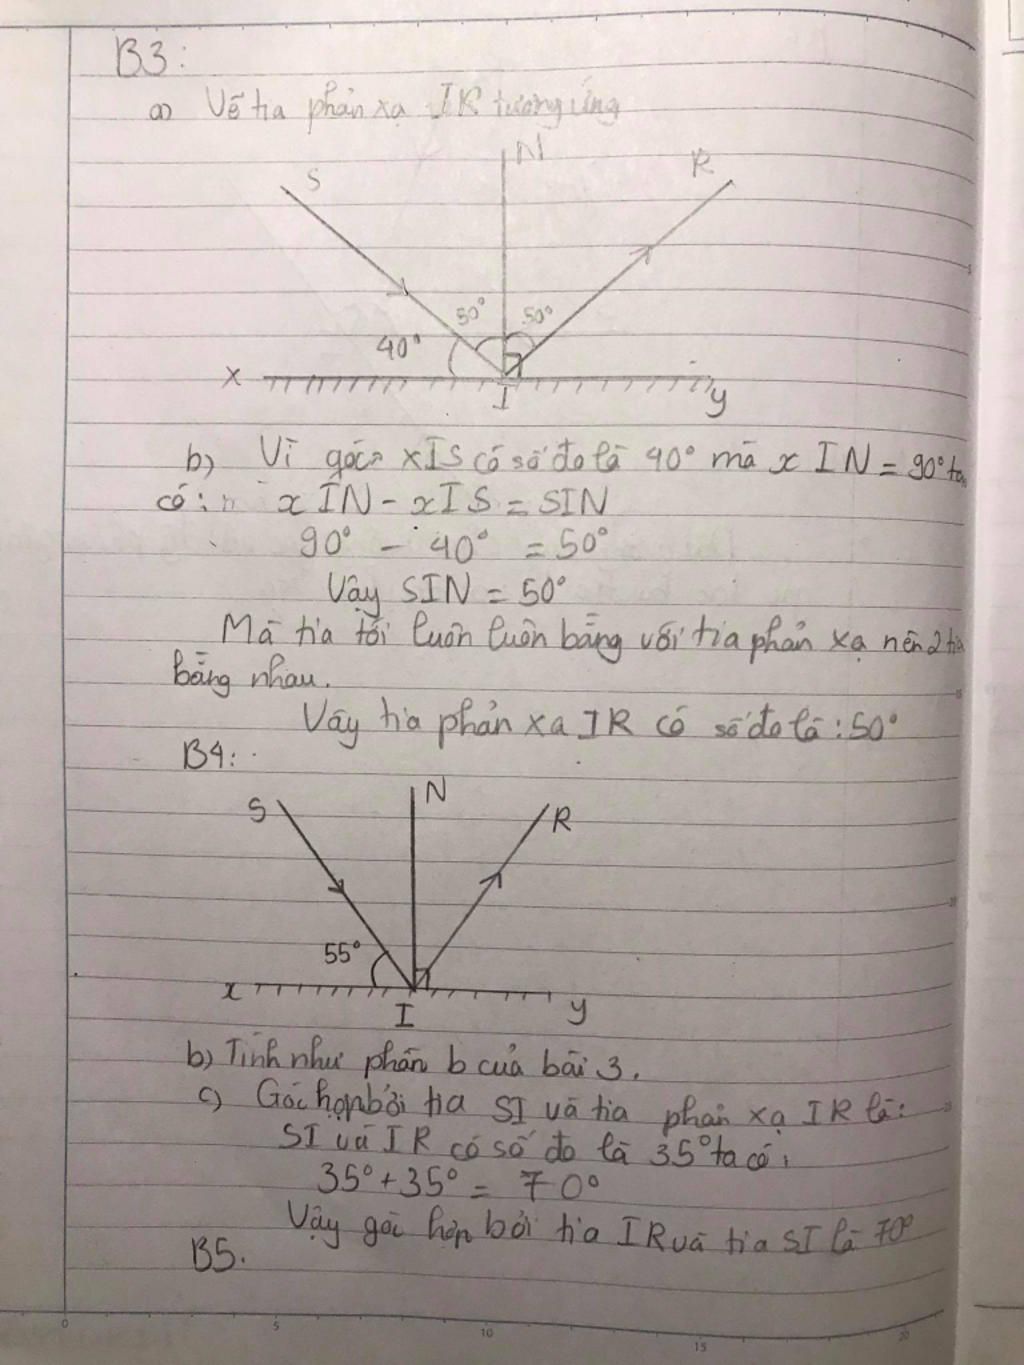 B3:
a) Vẽ tia phản xạ IR tương ứng
N
S
R
50° 50°
40°
x
I
y
b) Vì góc xIS có số đo là 40° mà xIN = 90° ta
có: xIN - xIS = SIN
90° - 40° = 50°
Vậy SIN = 50°
Mà tia tới luôn luôn bằng với tia phản xạ nên 2 tia
bằng nhau.
Vậy tia phản xạ IR có số đo là: 50°
B4:
N
S
R
55°
x
I
y
b) Tính như phần b của bài 3.
c) Góc hợp bởi tia SI và tia phản xạ IR là:
SI và IR có số đo là 35° ta có:
35° + 35° = 70°
Vậy góc hợp bởi tia IR và tia SI là 70°
B5.
0 5 10 15 20